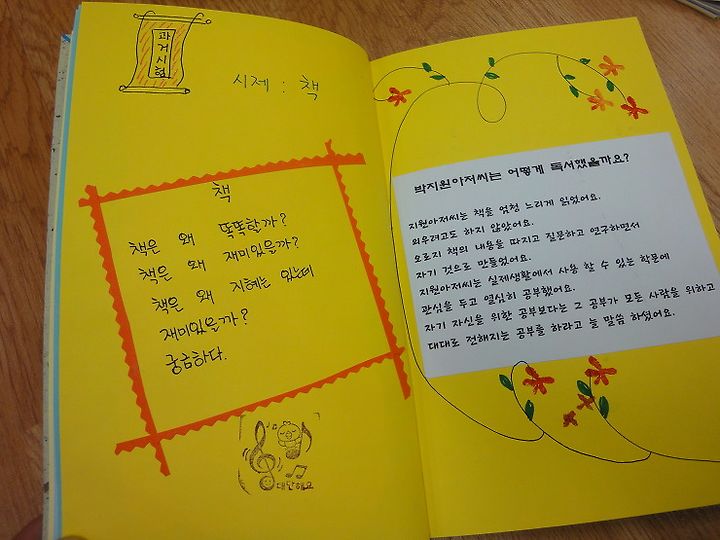 과거시험
시제 : 책
책
책은 왜 똑똑할까?
책은 왜 재미있을까?
책은 왜 지혜는 있는데
재미있을까?
궁금하다.
대단해요
박지원아저씨는 어떻게 독서했을까요?
지원아저씨는 책을 엄청 느리게 읽었어요.
외우려고도 하지 않았어요.
오로지 책의 내용을 따지고 질문하고 연구하면서
자기 것으로 만들었어요.
지원아저씨는 실제생활에서 사용 할 수 있는 학문에
관심을 두고 열심히 공부했어요.
자기 자신을 위한 공부보다는 그 공부가 모든 사람을 위하고
대대로 전해지는 공부를 하라고 늘 말씀 하셨어요.